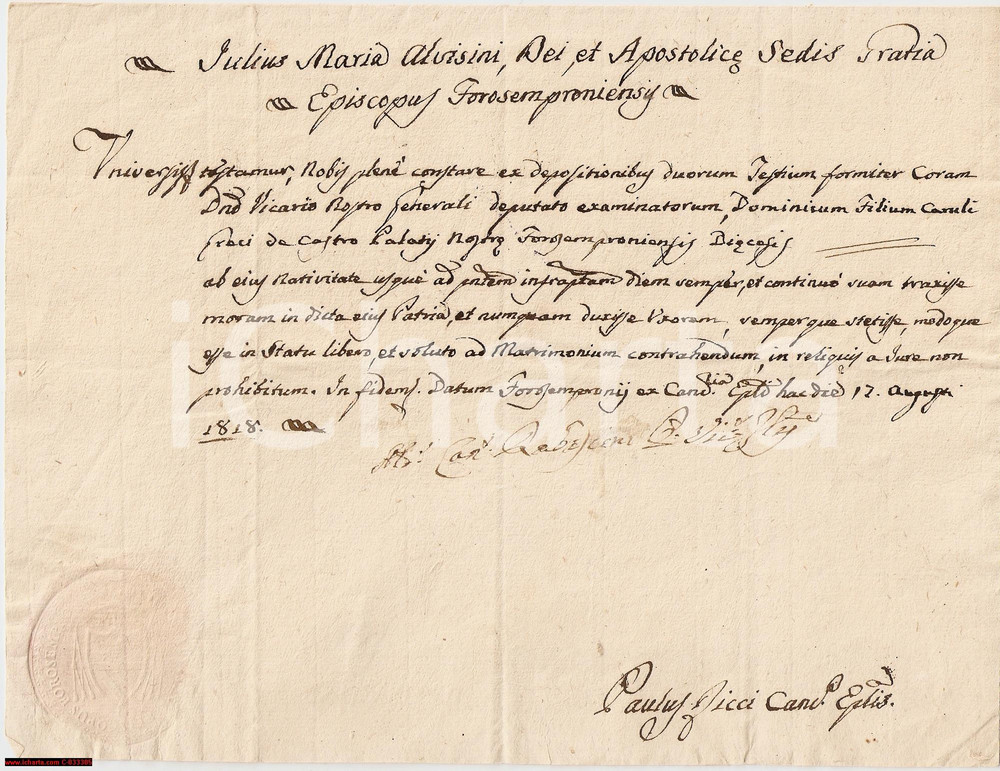 Julius Maria Alvisini, Dei, et Apostolicę Sedis Gratia
Episcopus Forosemproniensis
Universis testamur, Nobis plenè constare ex depositionibus duorum Testium formiter Coram
Dnõ Vicario Nostro Generali deputato examinatorum, Dominicum Filium Caroli
de Castro Palatij Nostrę Forosemproniensis Dięcesis
ab eius Nativitate usque ad pñtem infraptam diem semper, et continuò suam traxisse
moram in dicta eius Patria, et nunquam duxisse Uxorem, semperque stetisse, modoque
esse in Statu libero, et soluto ad Matrimonium contrahendum, in reliquis a Iure non
prohibitum. In fidem. Datum Forosempronij ex Canc.ria Eplĩ hac die 17. Augusti
1818.
Can.
Paulus Ricci Canc. Eplis.
icharta
www.icharta.com C-033305